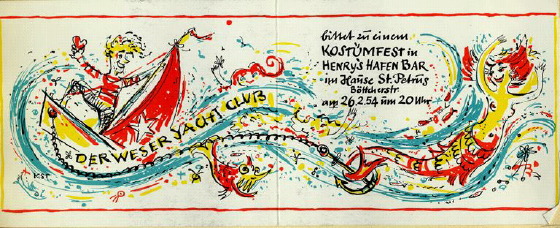 bittet zu einem
KOSTÜMFEST in
HENRY'S HAFEN BAR
im Hause St. Petrus
Böttcherstr
am 26.2.54 um 20 Uhr
DER WESER YACHT CLUB
KST